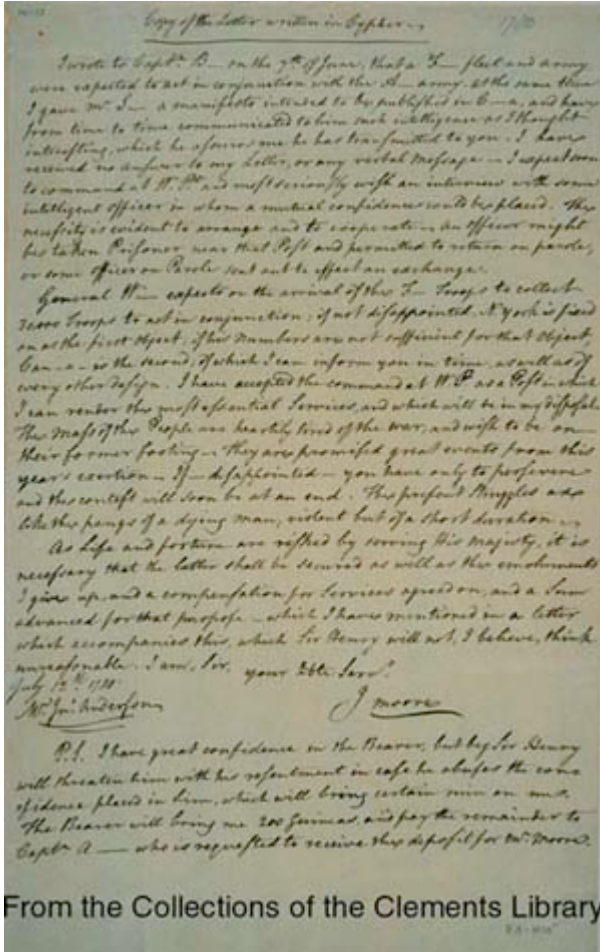 Copy of the Letter written in Cypher
1780
I wrote to Captn. B— on the 7th of June, that a F— fleet and army
were expected to act in conjunction with the A— army. at the same time
I gave Mr. S— a manifesto intended to be published in C—a, and have
from time to time communicated to him such intelligence as I thought
interesting, which he assures me he has transmitted to you. I have
received no answer to my Letter, or any verbal Message — I expect soon
to command at W. Pt. and most seriously wish an interview with some
intelligent officer in whom a mutual confidence could be placed. The
necessity is evident to arrange and to cooperate — An officer might
be taken Prisoner near that Post and permitted to return on parole,
or some officer on Parole sent out to effect an exchange.
General W— expects on the arrival of the F— Troops to collect
30,000 Troops to act in conjunction; if not disappointed, N. York is fixed
on as the first Object, if his Numbers are not sufficient for that Object,
Can-a- is the second; of which I can inform you in time, as well as of
every other design. I have accepted the command at W. P. as a Post in which
I can render the most essential Services, and which will be in my disposal.
The mass of the People are heartily tired of the war, and wish to be on
their former footing — They are promised great events from this
year's exertion — If — disappointed — you have only to persevere
and the contest will soon be at an end. The present Struggles are
like the pangs of a dying man, violent but of a short duration —
As Life and fortune are risked by serving His Majesty, it is
necessary that the latter shall be secured as well as the emoluments
I give up, and a compensation for Services agreed on, and a Sum
advanced for that purpose — which I have mentioned in a letter
which accompanies this, which Sir Henry will not, I believe, think
unreasonable. I am, Sir, your Hble. Servt.
July 12th 1780
Mr. Jno. Anderson
J Moore
P.S. I have great confidence in the Bearer, but beg Sir Henry
will threaten him with his resentment in case he abuses the con=
=fidence placed in him, which will bring certain ruin on me.
The Bearer will bring me 200 Guineas, and pay the remainder to
Captn A — who is requested to receive the deposit for Mr. Moore.
From the Collections of the Clements Library